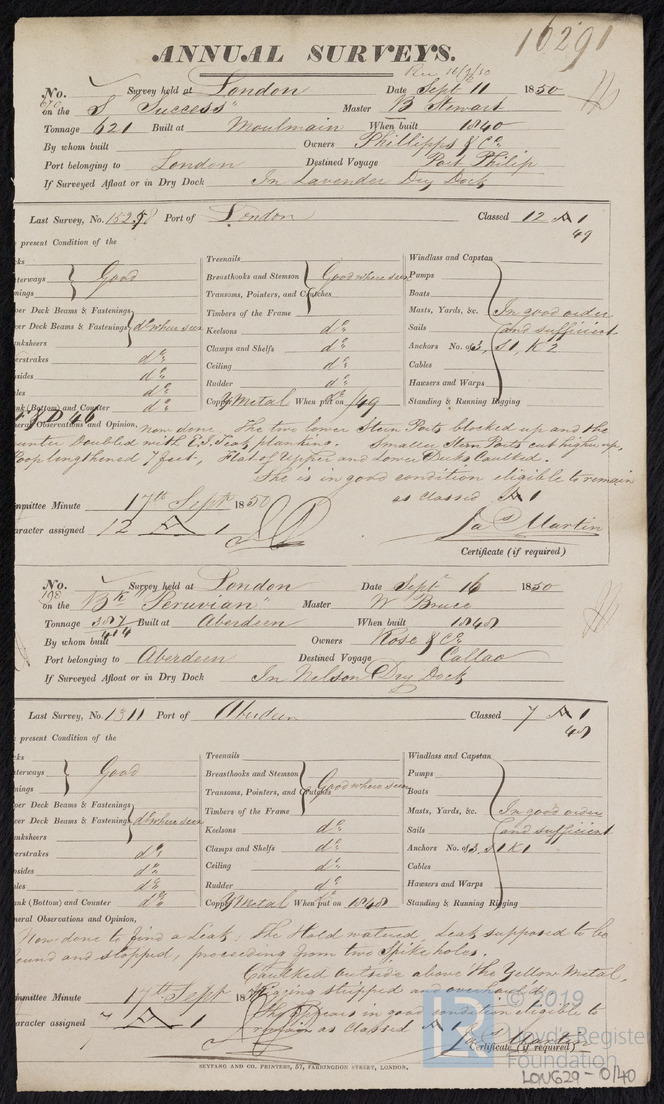 16291
ANNUAL SURVEYS.
No. Survey held at London Date Sept 11 1850
670 on the S "Success" Master B Stewart
Tonnage 621 Built at Moulmain When built 1840
By whom built Owners Phillipps & Co
Port belonging to London Destined Voyage Port Philip
If Surveyed Afloat or in Dry Dock In Lavender Dry Dock
Last Survey, No. Port of London Classed 12 A 1
49
present Condition of the
cks
terways Good
nings
per Deck Beams & Fastenings
wer Deck Beams & Fastenings do where seen
anksheers
erstrakes do
sides do
ales do
ank (Bottom) and Counter do
Treenails
Breasthooks and Stemson Good where seen
Transoms, Pointers, and Crutches
Timbers of the Frame
Keelsons do
Clamps and Shelfs do
Ceiling do
Rudder do
Copper Y Metal When put on /49
Windlass and Capstan
Pumps
Boats
Masts, Yards, &c. In good order
Sails and sufficient
Anchors No. of 3, S 1, K 2
Cables
Hawsers and Warps
Standing & Running Rigging
F & D 46
neral Observations and Opinion, now done, The two lower Stern Ports blocked up and the
unter Doubled with E.I. Teak planking. Smaller Stern Ports cut higher up,
Poop lengthened 7 feet, Flat of Upper and Lower Decks Caulked.
She is in good condition eligible to remain
as classed A 1
mmittee Minute 17th Sept 1850
aracter assigned 12 A 1
Jas Martin
Certificate (if required)
No. Survey held at London Date Sept 16 1850
198 on the Bk "Peruvian" Master W Bruce
Tonnage 387 Built at Aberdeen When built 1848
414
By whom built Owners Rose & Co
Port belonging to Aberdeen Destined Voyage Callao
If Surveyed Afloat or in Dry Dock In Nelson Dry Dock
Last Survey, No. 1311 Port of Aberdeen Classed 7 A 1
48
present Condition of the
cks
terways Good
nings
per Deck Beams & Fastenings
wer Deck Beams & Fastenings do where seen
anksheers
erstrakes do
sides do
ales do
ank (Bottom) and Counter do
Treenails
Breasthooks and Stemson Good where seen
Transoms, Pointers, and Crutches
Timbers of the Frame
Keelsons do
Clamps and Shelfs do
Ceiling do
Rudder do
Copper Y Metal When put on 1848
Windlass and Capstan
Pumps
Boats
Masts, Yards, &c. In good order
Sails and sufficient
Anchors No. of 3, S 1 K 1
Cables
Hawsers and Warps
Standing & Running Rigging
neral Observations and Opinion,
Now done to find a Leak: The Hold watered, Leak supposed to be
ound and stopped, proceeding from two Spike holes.
Caulked outside above the Yellow Metal,
Rigging stripped and overhauled
mmittee Minute 17th Sept 18
She appears in good condition eligible to
aracter assigned 7 A 1 remain as classed A 1
Jas Martin
Certificate (if required)
SEYFANG AND CO. PRINTERS, 57, FARRINGDON STREET, LONDON.
LR © 2019
Lloyd's Register
Foundation
LON629-0140